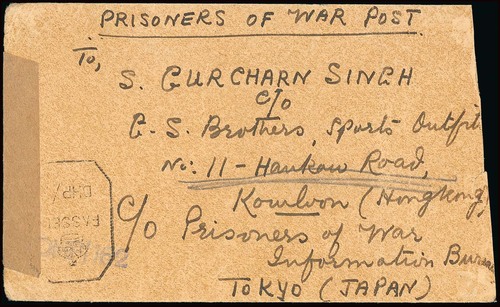 PRISONERS OF WAR POST.
To,
S. GURCHARN SINGH
C/o
G. S. Brothers, Sports Outfit
No: 11 - Hankow Road,
Kowloon (Hongkong)
C/o Prisoners of War
Information Bureau
TOKYO (JAPAN)
PASSED
DHP/